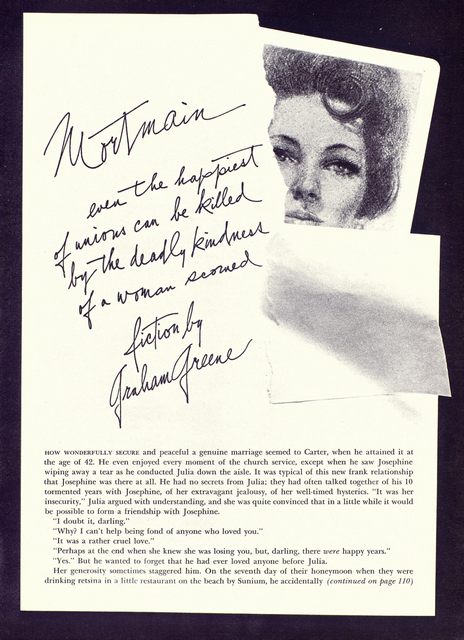 Mortmain
even the happiest
of unions can be killed
by the deadly kindness
of a woman scorned
fiction by
Graham Greene
HOW WONDERFULLY SECURE and peaceful a genuine marriage seemed to Carter, when he attained it at
the age of 42. He even enjoyed every moment of the church service, except when he saw Josephine
wiping away a tear as he conducted Julia down the aisle. It was typical of this new frank relationship
that Josephine was there at all. He had no secrets from Julia; they had often talked together of his 10
tormented years with Josephine, of her extravagant jealousy, of her well-timed hysterics. "It was her
insecurity," Julia argued with understanding, and she was quite convinced that in a little while it would
be possible to form a friendship with Josephine.
"I doubt it, darling."
"Why? I can't help being fond of anyone who loved you."
"It was a rather cruel love."
"Perhaps at the end when she knew she was losing you, but, darling, there were happy years."
"Yes." But he wanted to forget that he had ever loved anyone before Julia.
Her generosity sometimes staggered him. On the seventh day of their honeymoon when they were
drinking retsina in a little restaurant on the beach by Sunium, he accidentally (continued on page 110)